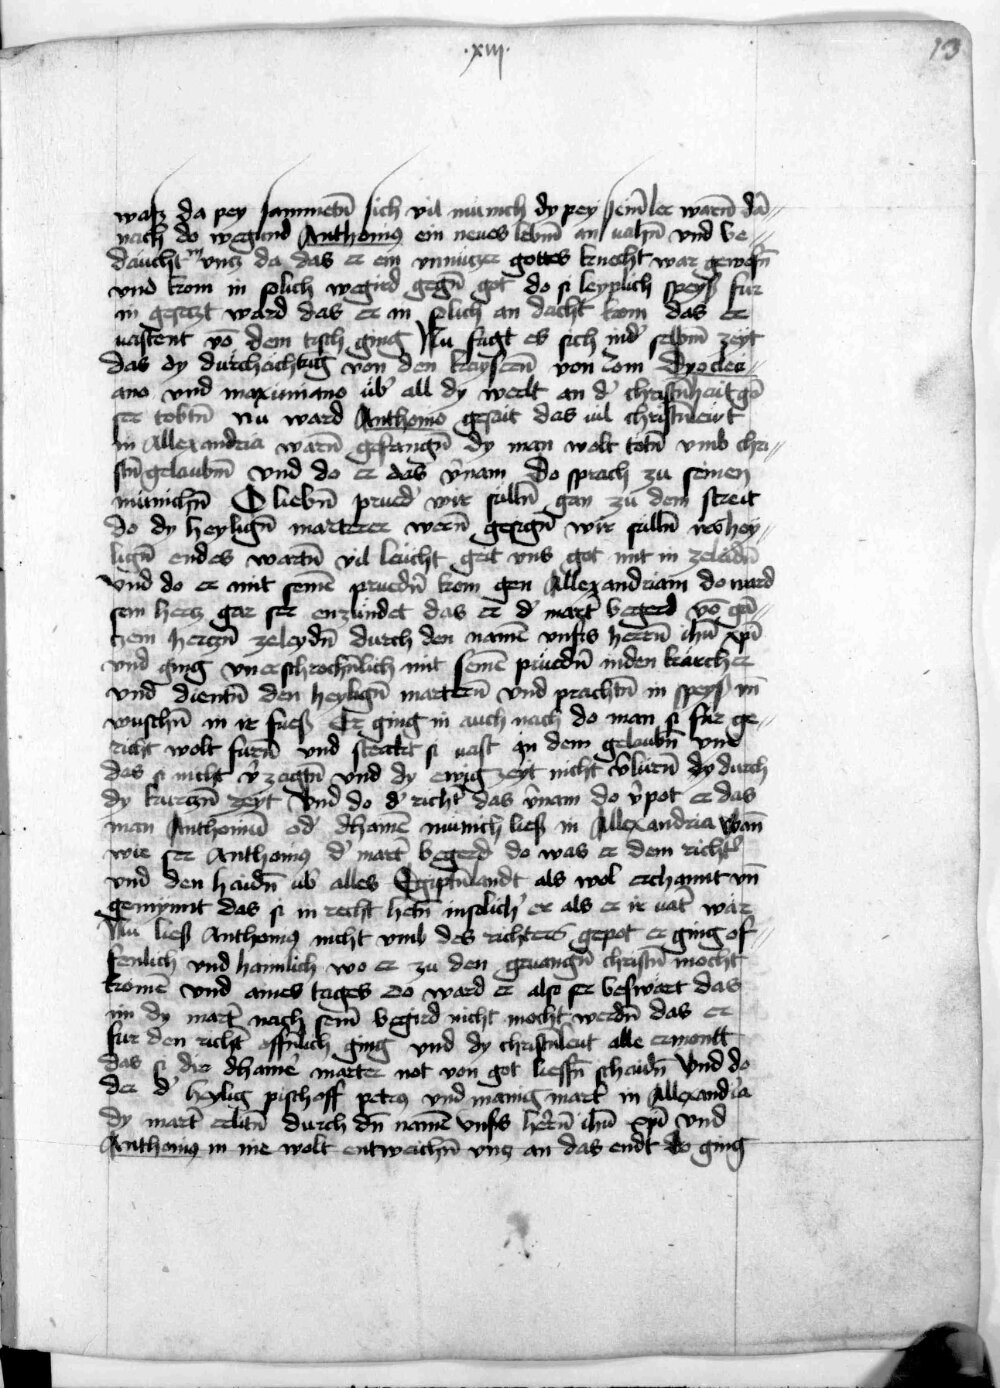 ·xiij·
13
wasz da pey sammetn̄ sich vil münich dy pey seinˀ ler warn̄ dā//
nach do wegund Anthonius ein neues lebn̄ an vahn̄ vnd be//
däucht in vncz da das er ein vnnüczer gottes knecht war gewesn̄
vnd kom in solich wegird gegn̄ got do si leyplich speyß fur
in geseczt ward das er in solich an dacht kom das er
vastent vō dem tisch ging Nu fugt es sich in dˀ selbm̄ zeyt
das dy durchächtūg von den kaysern̄ von rom Dyocleci//
ano vnd maximiano übˀ all dy werlt an dˀ christn̄hait gā
ser tobtn̄ nu ward Anthonio gesait das vil christnleüt
in Allexandria warn̄ gefangn̄ dy man wolt totn̄ vmb chri//
stn̄ gelaubm̄ vnd do er das vˀnam Do sprach zu seinen
münichn̄ O liebn̄ pruedˀ wir sulln̄ gan zu dem streit
do dy heylign̄ marterer wern̄ gesign̄ wir sulln̄ irs hey//
lign̄ endes wartn̄ vil leücht geit vns got mit in zeleidn̄
vnd do er mit seinē pruedˀn̄ kom gen Allexandriam do ward
sein hercz gar ser enzündet das er dˀ martˀ begerd vō gā//
czem herczn̄ zeleydn̄ durch den namē vnsˀs herrn̄ ihū xp̄i
vnd ging vnerschrochn̄lich mit seinē prüedˀn̄ in den kärcher
vnd dientn̄ den heylign̄ martern̄ vnd prachtn̄ in speyß vn̄
wuschn̄ in ir fueß Er ging in auch nach do man si für ge//
richt wolt furn̄ vnd sterckt si vast an dem gelaubn̄ vnd
das si nicht vˀzagtn̄ vnd dy ewig zeyt nicht vˀlürn̄ dy durch
dy kurczn̄ zeyt Vnd do dˀ richtˀ das vˀnam do vˀpot er das
man Anthoniū odˀ dhainē münich ließ in Allexandria wan̄
wie ser Anthonius dˀ martˀ begerd do was er dem richtˀ
vnd den haidn̄ übˀ alles Egiptn̄landt als wol erchannt vn̄
gemynnt das si in recht hetn̄ in solichˀ er als er ir vatˀ wär
Nu ließ Anthonius nicht vmb des richters gepot er ging of//
fenlich vnd hamlich wo er zu den geuangn̄ christn̄ mocht
komē vnd ains tages Do ward er also ser beswärt das
im dy martˀ nach seinˀ begird nicht mocht werdn̄ das er
für den richtˀ offn̄lich ging vnd dy christn̄leut alle ermontt
das si die dhainē marter not von got liessn̄ schaidn̄ Vnd do
der dˀ heylig pischoff petrus vnd manig martˀ in Allexandria
dy martˀ erlitn̄ durch dn̄ namē vnsˀs herˀn̄ ihū xp̄i vnd
Anthonius in nie wolt entweichn̄ vncz an das endt do ging